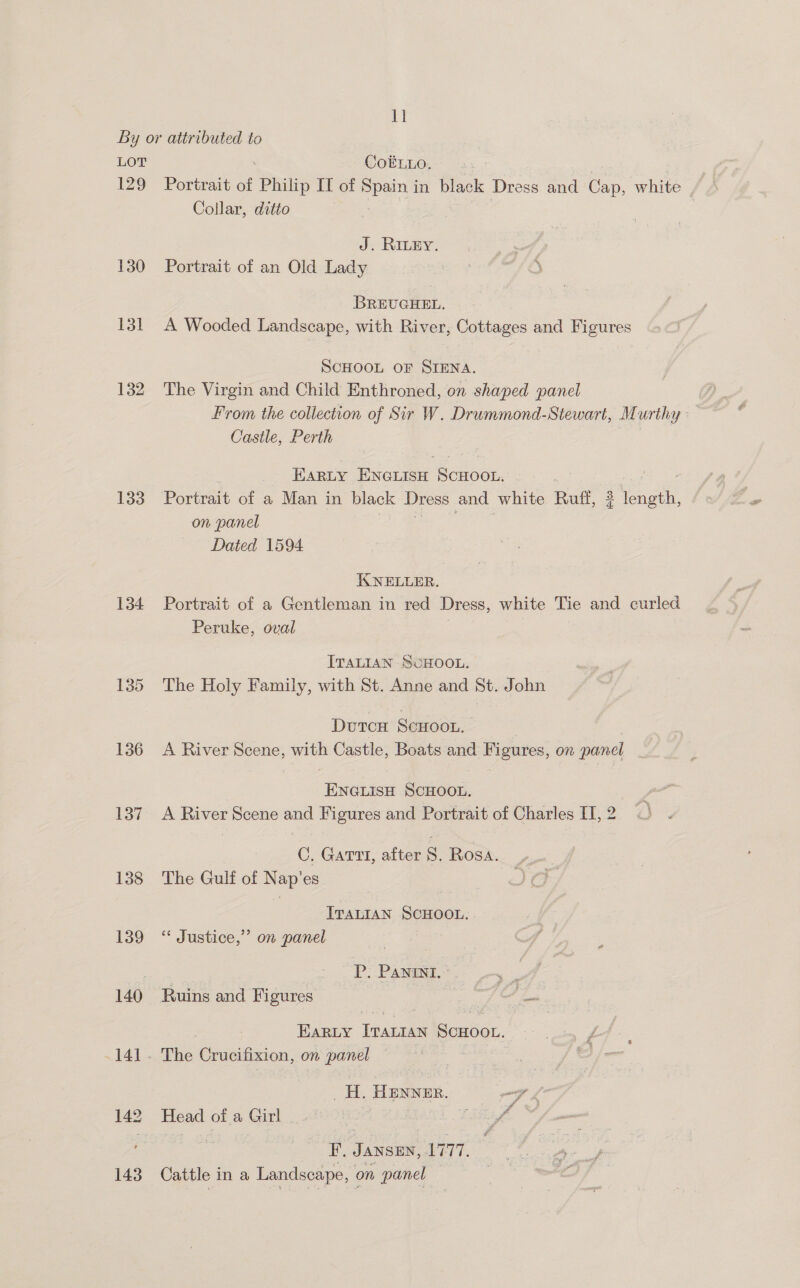 11
By or attributed to
LOT COËLLO.
129 Portrait of Philip II of Spain in black Dress and Cap, white
Collar, ditto
J. RILEY.
130 Portrait of an Old Lady
BREUGHEL.
131 A Wooded Landscape, with River, Cottages and Figures
SCHOOL OF SIENA.
132 The Virgin and Child Enthroned, on shaped panel
From the collection of Sir W. Drummond-Stewart, Murthy
Castle, Perth
EARLY ENGLISH SCHOOL.
133 Portrait of a Man in black Dress and white Ruff, ¾ length,
on panel
Dated 1594
KNELLER.
134 Portrait of a Gentleman in red Dress, white Tie and curled
Peruke, oval
ITALIAN SCHOOL.
135 The Holy Family, with St. Anne and St. John
DUTCH SCHOOL.
136 A River Scene, with Castle, Boats and Figures, on panel
ENGLISH SCHOOL.
137 A River Scene and Figures and Portrait of Charles II, 2
C. GATTI, after S. ROSA.
138 The Gulf of Nap'es
ITALIAN SCHOOL.
139 “Justice,” on panel
P. PANINI.
140 Ruins and Figures
EARLY ITALIAN SCHOOL.
141 The Crucifixion, on panel
H. HENNER.
142 Head of a Girl
F. JANSEN, 1777.
143 Cattle in a Landscape, on panel